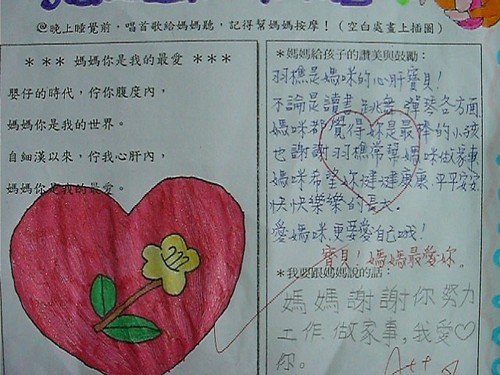 @晚上睡覺前，唱首歌給媽媽聽，記得幫媽媽按摩！（空白處畫上插圖）
*** 媽媽你是我的最愛 ***
嬰仔的時代，佇你腹肚內，
媽媽你是我的世界。
自細漢以來，佇我心肝內，
媽媽你是我的最愛。
*媽媽給孩子的讚美與鼓勵：
羽樵是媽咪的心肝寶貝！
不論是讀書 跳舞 彈琴各方面
媽咪都覺得妳是最棒的小孩
也謝謝羽樵常幫媽咪做家事
媽咪希望妳健健康康、平平安安
快快樂樂的長大。
愛媽咪更要愛自己哦！
寶貝！媽媽最愛妳。
*我要跟媽媽說的話：
媽媽謝謝你努力
工作、做家事，我愛♡
你。
A++